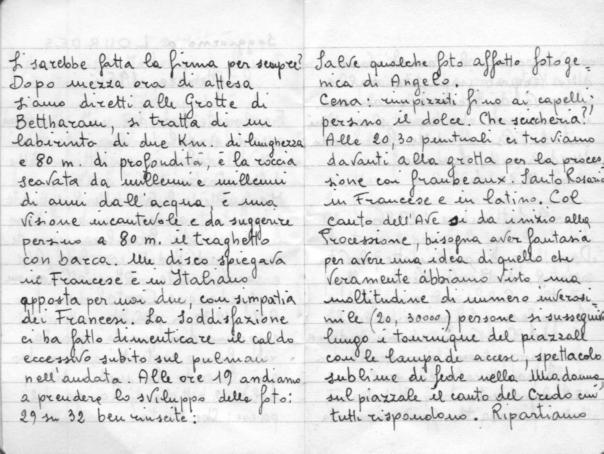 Ci sarebbe fatta la firma per sempre?
Dopo mezza ora di attesa
siamo diretti alle Grotte di
Bettharam, si tratta di un
labirinto di due Km. di lunghezza
e 80 m. di profondità, è la roccia
scavata da millenni e millenni
di anni dall'acqua, è una
visione incantevole e da suggerire
persino a 80 m. il traghetto
con barca. Un disco spiegava
in Francese e in Italiano
apposta per noi due, con simpatia
dei Francesi. La soddisfazione
ci ha fatto dimenticare il caldo
eccessivo subito sul pulman
nell'andata. Alle ore 19 andiamo
a prendere lo sviluppo delle foto:
29 su 32 ben riuscite:
Salve qualche foto affatto fotoge
nica di Angelo.
Cena: rimpizziti fino ai capelli;
persino il dolce. Che sciccheria?!
Alle 20,30 puntuali ci troviamo
davanti alla grotta per la proces
sione coi flambeaux. Santo Rosario
in Francese e in latino. Col
canto dell'Ave si da inizio alla
Processione, bisogna aver fantasia
per avere una idea di quello che
veramente abbiamo visto una
moltitudine di numero inverosi
mile (20, 30000) persone si susseguiv
lungo i tournique del piazzale
con le lampade accese, spettacolo
sublime di fede nella Madonna,
sul piazzale il canto del Credo cui
tutti rispondono. Ripartiamo